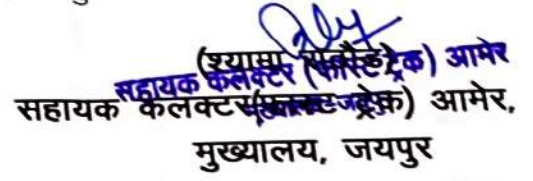 (श्यामा राठौड़)
सहायक कलक्टर (फास्ट ट्रेक) आमेर
सहायक कलक्टर(फास्ट ट्रेक) आमेर,
मुख्यालय, जयपुर